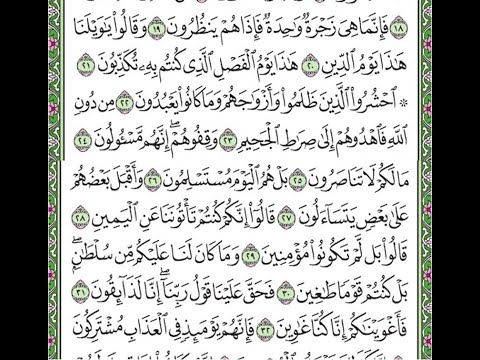 ١٨ فَإِنَّمَا هِيَ زَجْرَةٌ وَٰحِدَةٌ فَإِذَا هُمْ يَنظُرُونَ ١٩ وَقَالُوا۟ يَٰوَيْلَنَا
هَٰذَا يَوْمُ ٱلدِّينِ ٢٠ هَٰذَا يَوْمُ ٱلْفَصْلِ ٱلَّذِى كُنتُم بِهِۦ تُكَذِّبُونَ ٢١
۞ ٱحْشُرُوا۟ ٱلَّذِينَ ظَلَمُوا۟ وَأَزْوَٰجَهُمْ وَمَا كَانُوا۟ يَعْبُدُونَ ٢٢ مِن دُونِ
ٱللَّهِ فَٱهْدُوهُمْ إِلَىٰ صِرَٰطِ ٱلْجَحِيمِ ٢٣ وَقِفُوهُمْ ۖ إِنَّهُم مَّسْـُٔولُونَ ٢٤
مَا لَكُمْ لَا تَنَاصَرُونَ ٢٥ بَلْ هُمُ ٱلْيَوْمَ مُسْتَسْلِمُونَ ٢٦ وَأَقْبَلَ بَعْضُهُمْ
عَلَىٰ بَعْضٍ يَتَسَآءَلُونَ ٢٧ قَالُوٓا۟ إِنَّكُمْ كُنتُمْ تَأْتُونَنَا عَنِ ٱلْيَمِينِ ٢٨
قَالُوا۟ بَل لَّمْ تَكُونُوا۟ مُؤْمِنِينَ ٢٩ وَمَا كَانَ لَنَا عَلَيْكُم مِّن سُلْطَٰنٍۭ ۖ
بَلْ كُنتُمْ قَوْمًا طَٰغِينَ ٣٠ فَحَقَّ عَلَيْنَا قَوْلُ رَبِّنَآ ۖ إِنَّا لَذَآئِقُونَ ٣١
فَأَغْوَيْنَٰكُمْ إِنَّا كُنَّا غَٰوِينَ ٣٢ فَإِنَّهُمْ يَوْمَئِذٍ فِى ٱلْعَذَابِ مُشْتَرِكُونَ